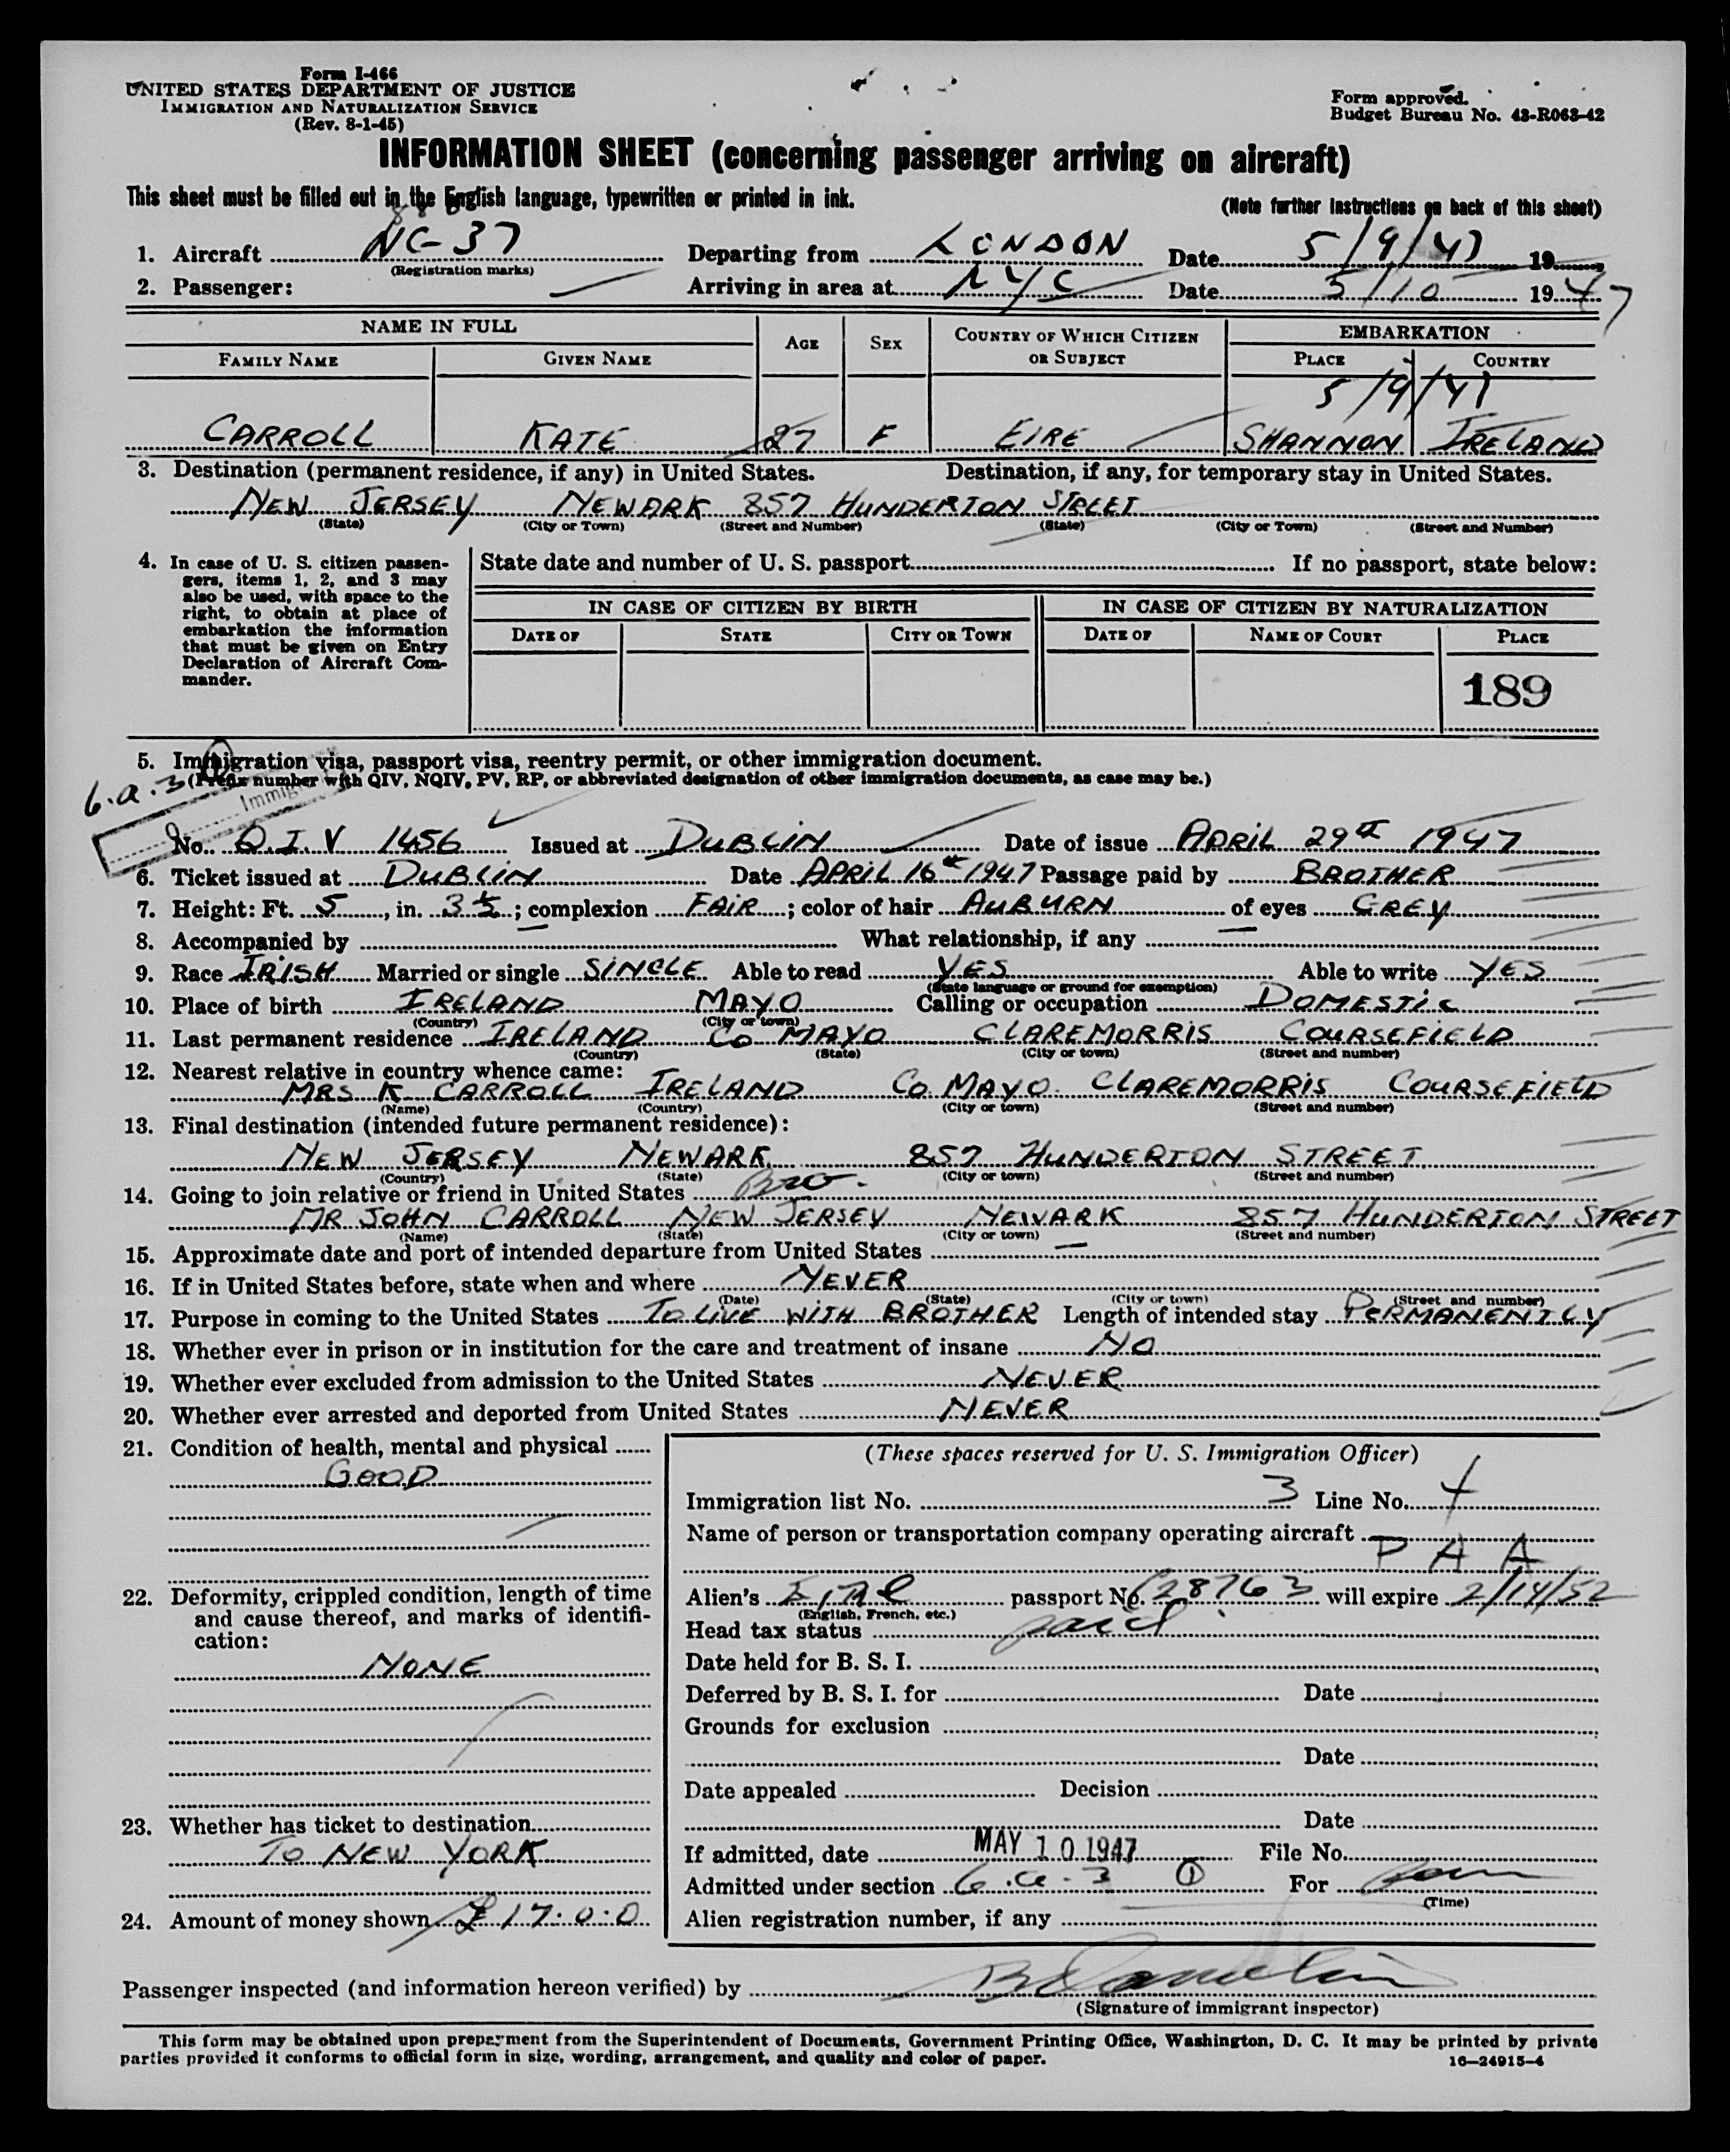 Form I-466
UNITED STATES DEPARTMENT OF JUSTICE
IMMIGRATION AND NATURALIZATION SERVICE
(Rev. 8-1-45)
Form approved.
Budget Bureau No. 43-R063-42
INFORMATION SHEET (concerning passenger arriving on aircraft)
This sheet must be filled out in the English language, typewritten or printed in ink.
(Note further instructions on back of this sheet)
1. Aircraft NC-37 Departing from LONDON Date 5/9/47 19
(Registration marks)
2. Passenger: Arriving in area at NYC Date 5/10 1947
NAME IN FULL AGE SEX COUNTRY OF WHICH CITIZEN OR SUBJECT EMBARKATION
FAMILY NAME GIVEN NAME PLACE COUNTRY
5/9/47
CARROLL KATE 27 F EIRE SHANNON IRELAND
3. Destination (permanent residence, if any) in United States. Destination, if any, for temporary stay in United States.
NEW JERSEY NEWARK 857 HUNDERTON STREET
(State) (City or Town) (Street and Number) (State) (City or Town) (Street and Number)
4. In case of U. S. citizen passen-
gers, items 1, 2, and 3 may
also be used, with space to the
right, to obtain at place of
embarkation the information
that must be given on Entry
Declaration of Aircraft Com-
mander.
State date and number of U. S. passport If no passport, state below:
IN CASE OF CITIZEN BY BIRTH IN CASE OF CITIZEN BY NATURALIZATION
DATE OF STATE CITY OR TOWN DATE OF NAME OF COURT PLACE
189
5. Immigration visa, passport visa, reentry permit, or other immigration document.
6.a.3 (Prefix number with QIV, NQIV, PV, RP, or abbreviated designation of other immigration documents, as case may be.)
No. Q.I.V 1456 Issued at DUBLIN Date of issue APRIL 29th 1947
6. Ticket issued at DUBLIN Date APRIL 16th 1947 Passage paid by BROTHER
7. Height: Ft. 5, in. 3½; complexion FAIR; color of hair AUBURN of eyes GREY
8. Accompanied by — What relationship, if any —
9. Race IRISH Married or single SINGLE Able to read YES Able to write YES
(State language or ground for exemption)
10. Place of birth IRELAND MAYO Calling or occupation DOMESTIC
(Country) (City or town)
11. Last permanent residence IRELAND CO MAYO CLAREMORRIS COURSEFIELD
(Country) (State) (City or town) (Street and number)
12. Nearest relative in country whence came:
MRS K CARROLL IRELAND CO. MAYO. CLAREMORRIS COURSEFIELD
(Name) (Country) (City or town) (Street and number)
13. Final destination (intended future permanent residence):
NEW JERSEY NEWARK 857 HUNDERTON STREET
(Country) (State) (City or town) (Street and number)
14. Going to join relative or friend in United States Bro.
MR JOHN CARROLL NEW JERSEY NEWARK 857 HUNDERTON STREET
(Name) (State) (City or town) (Street and number)
15. Approximate date and port of intended departure from United States —
16. If in United States before, state when and where NEVER
(Date) (State) (City or town) (Street and number)
17. Purpose in coming to the United States TO LIVE WITH BROTHER Length of intended stay PERMANENTLY
18. Whether ever in prison or in institution for the care and treatment of insane NO
19. Whether ever excluded from admission to the United States NEVER
20. Whether ever arrested and deported from United States NEVER
21. Condition of health, mental and physical
GOOD
22. Deformity, crippled condition, length of time
and cause thereof, and marks of identifi-
cation:
NONE
23. Whether has ticket to destination
TO NEW YORK
24. Amount of money shown £17.0.0
(These spaces reserved for U. S. Immigration Officer)
Immigration list No. 3 Line No. 4
Name of person or transportation company operating aircraft
P A A
Alien's Eire passport No. 628763 will expire 2/14/52
(English, French, etc.)
Head tax status paid
Date held for B. S. I.
Deferred by B. S. I. for Date
Grounds for exclusion
Date
Date appealed Decision
Date
If admitted, date MAY 10 1947 File No.
Admitted under section 6.a.3 ① For
(Time)
Alien registration number, if any
Passenger inspected (and information hereon verified) by
(Signature of immigrant inspector)
This form may be obtained upon prepayment from the Superintendent of Documents, Government Printing Office, Washington, D. C. It may be printed by private
parties provided it conforms to official form in size, wording, arrangement, and quality and color of paper.
16—24915-4